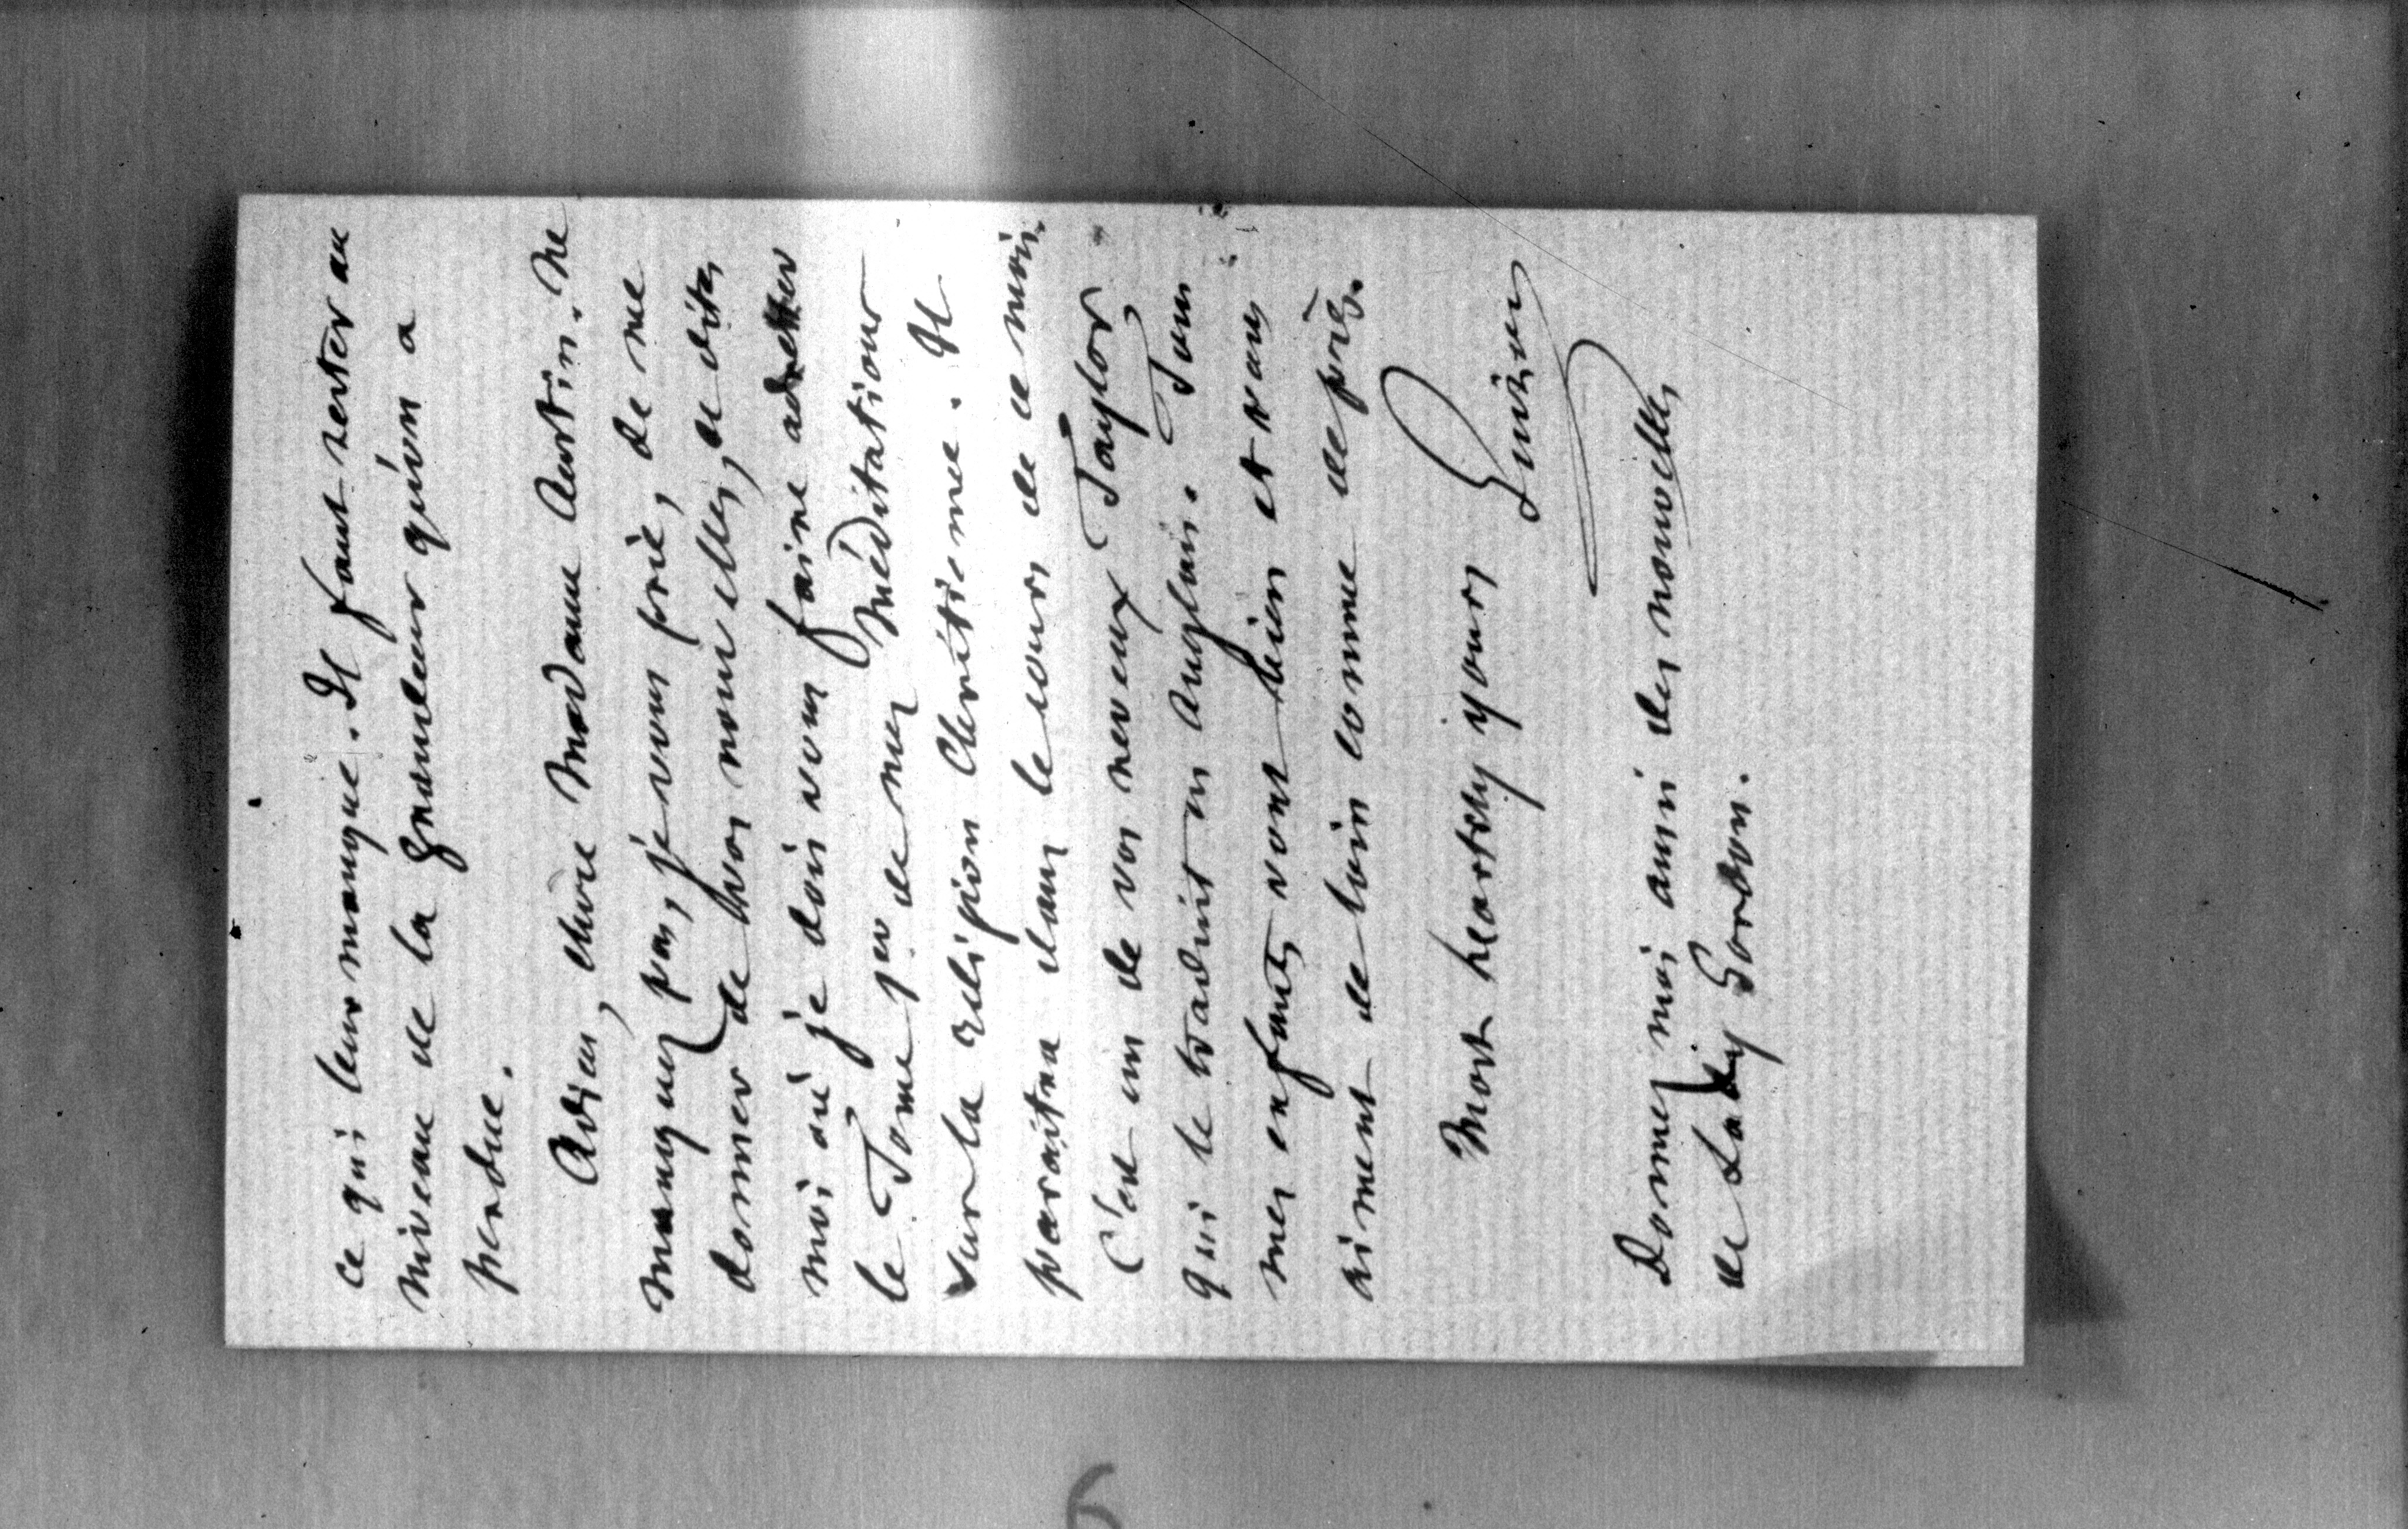 ce qui leur manque. Il faut rester au
niveau de la grandeur qu'on a
perdue.
Adieu, chère Madame Austin. Ne
manquez pas, je vous prie, de me
donner de vos nouvelles, et dites
moi où je dois vous faire adresser
le Tome 1er de mes Méditations
sur la religion Chrétienne. Il
paraitra dans le cours de ce mois.
C'est un de vos neveux Taylor
qui le traduit en Anglais. Tous
mes enfants vont bien et vous
aiment de loin comme de près.
Most heartily yours
Guizot
Donnez moi aussi des nouvelles
de Lady Gordon.
6